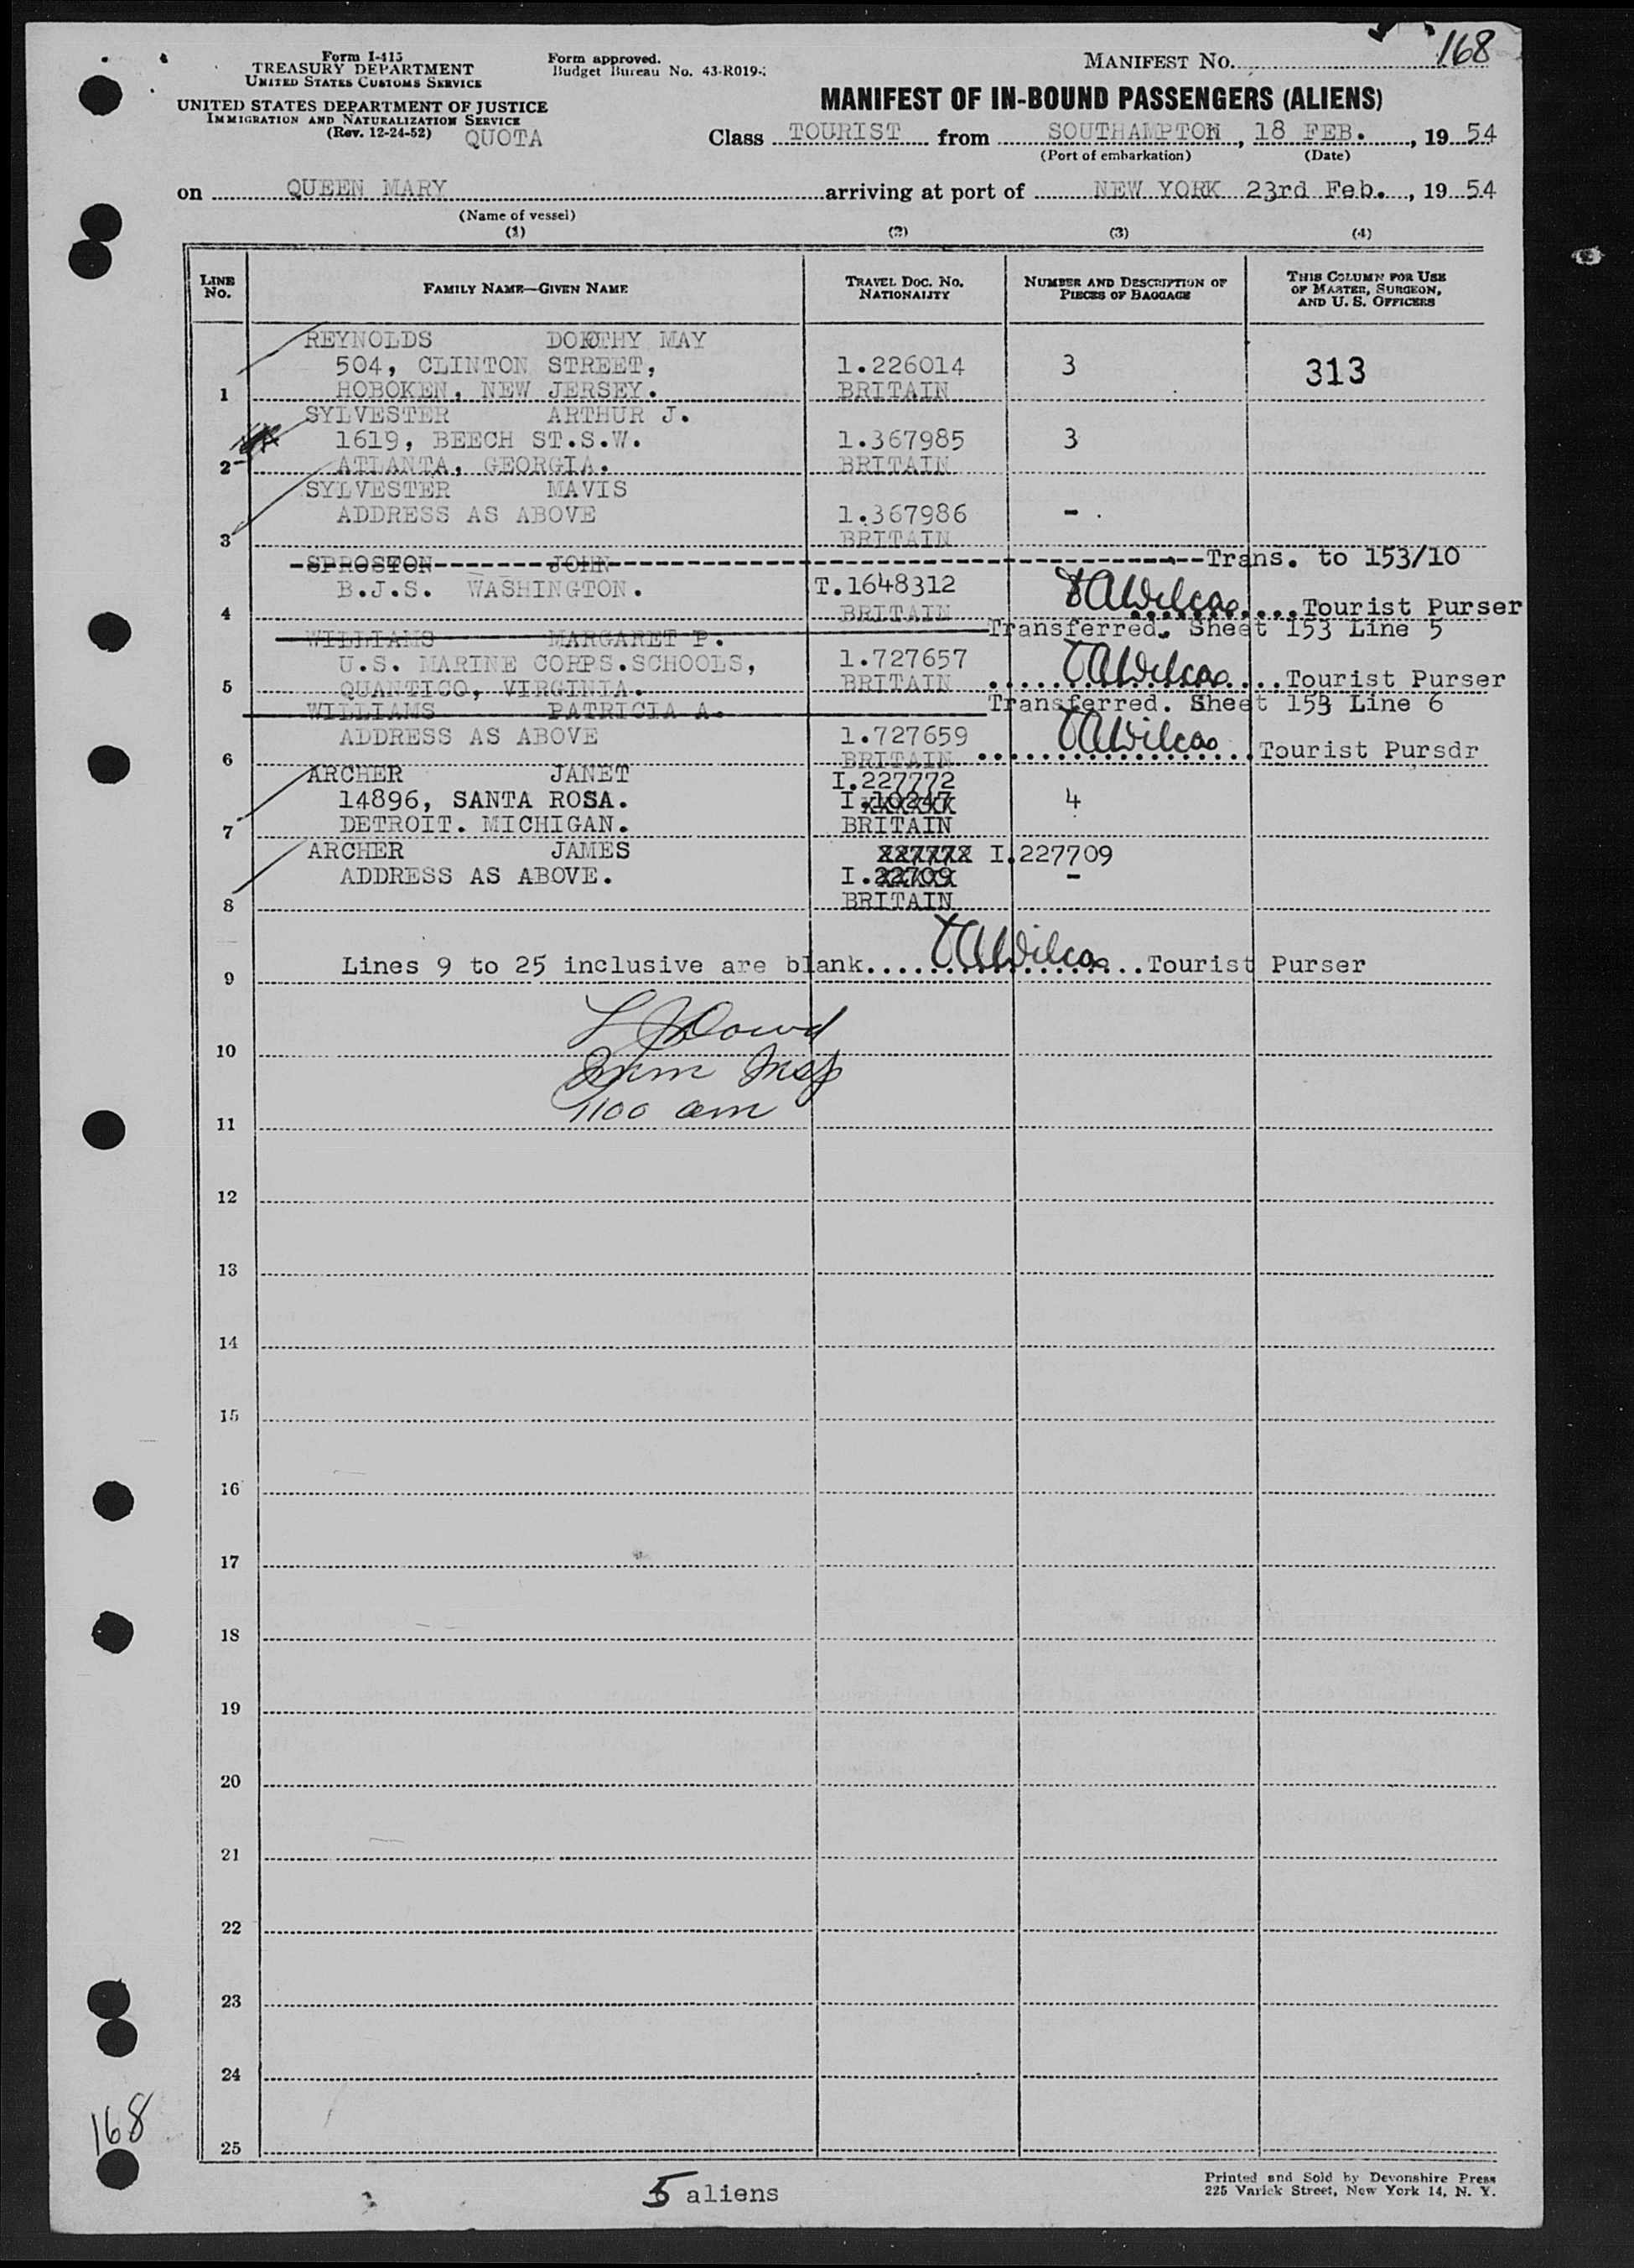 168
Form I-415
TREASURY DEPARTMENT
UNITED STATES CUSTOMS SERVICE
Form approved.
Budget Bureau No. 43-R019-
MANIFEST No.
UNITED STATES DEPARTMENT OF JUSTICE
IMMIGRATION AND NATURALIZATION SERVICE
(Rev. 12-24-52) QUOTA
MANIFEST OF IN-BOUND PASSENGERS (ALIENS)
Class TOURIST from SOUTHAMPTON, 18 FEB., 1954
(Port of embarkation) (Date)
on QUEEN MARY arriving at port of NEW YORK 23rd Feb., 1954
(Name of vessel)
(1) (2) (3) (4)
LINE NO. FAMILY NAME—GIVEN NAME TRAVEL DOC. NO. NATIONALITY NUMBER AND DESCRIPTION OF PIECES OF BAGGAGE THIS COLUMN FOR USE OF MASTER, SURGEON, AND U. S. OFFICERS
REYNOLDS DOROTHY MAY
504, CLINTON STREET, 1.226014 3 313
1 HOBOKEN, NEW JERSEY. BRITAIN
SYLVESTER ARTHUR J.
1619, BEECH ST.S.W. 1.367985 3
2 ATLANTA, GEORGIA. BRITAIN
SYLVESTER MAVIS
ADDRESS AS ABOVE 1.367986 -
3 BRITAIN
SPROSTON JOHN Trans. to 153/10
B.J.S. WASHINGTON. T.1648312
4 BRITAIN Wilcox....Tourist Purser
WILLIAMS MARGARET P. Transferred. Sheet 153 Line 5
U.S. MARINE CORPS.SCHOOLS, 1.727657
5 QUANTICO, VIRGINIA. BRITAIN Wilcox....Tourist Purser
WILLIAMS PATRICIA A. Transferred. Sheet 153 Line 6
ADDRESS AS ABOVE 1.727659
6 BRITAIN Wilcox....Tourist Pursdr
ARCHER JANET I.227772
14896, SANTA ROSA. I.10247 4
7 DETROIT. MICHIGAN. BRITAIN
ARCHER JAMES 227772 I.227709
ADDRESS AS ABOVE. I.22709 -
8 BRITAIN
Lines 9 to 25 inclusive are blank....Wilcox...Tourist Purser
9
Dowd
10
Imm Insp
1100 am
11
12
13
14
15
16
17
18
19
20
21
22
23
24
168
25
5 aliens
Printed and Sold by Devonshire Press
225 Varick Street, New York 14, N. Y.